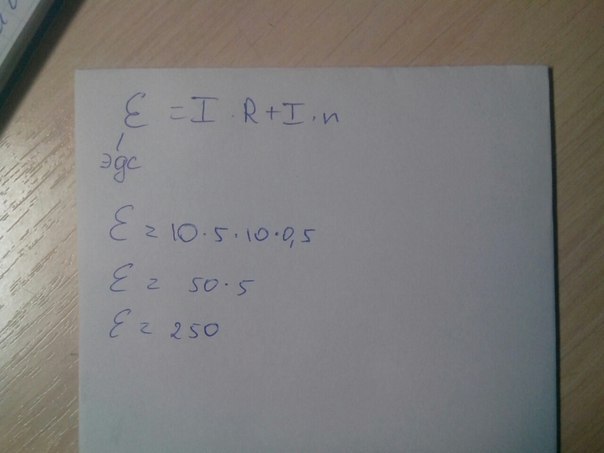 ℰ = I · R + I · n
эдс
ℰ = 10 · 5 · 10 · 0,5
ℰ = 50 · 5
ℰ = 250